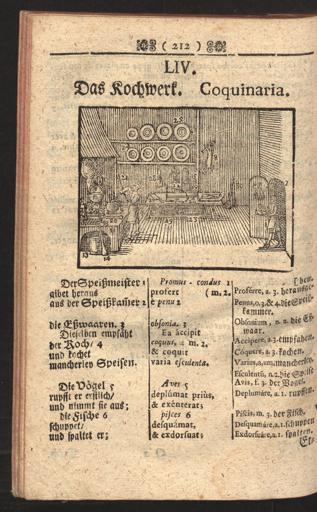 ( 212 )
LIV.
Das Kochwerk. Coquinaria.
Der Speißmeister 1
gibet heraus
aus der Speißkam̃er 2
die Eßwaaren. 3
Dieselben empfäht
der Koch/ 4
und kochet
mancherley Speisen.
Die Vögel 5
rupfft er erstlich/
und nimmt sie aus;
die Fische 6
schuppet/
und spaltet er;
Promus-condus 1
profert ( m. 2.
è penu 2
obsonia. 3
Ea accipit
coquus, 4 m. 2.
& coquit
varia esculenta.
Aves 5
deplúmat priùs,
& exénterat;
pisces 6
desquámat,
& exdorsuat;
Proférre, a. 3. herausge-
Penus, o. 3. & 4. die Speiß-
kammer.
Obsónium, n. 2. die Eß-
waar.
Accípere, a. 3. empfahen.
Cóquere, a. 3. kochen.
Varius, a, um, mancherley.
Esculentū, n. 2. die Speise
Avis, f. 3. der Vogel.
Deplumáre, a. 1. rupffen.
Piscis, m. 3. der Fisch.
Desquamáre, a. 1. schuppen
Exdorsuáre, a. 1. spalten.